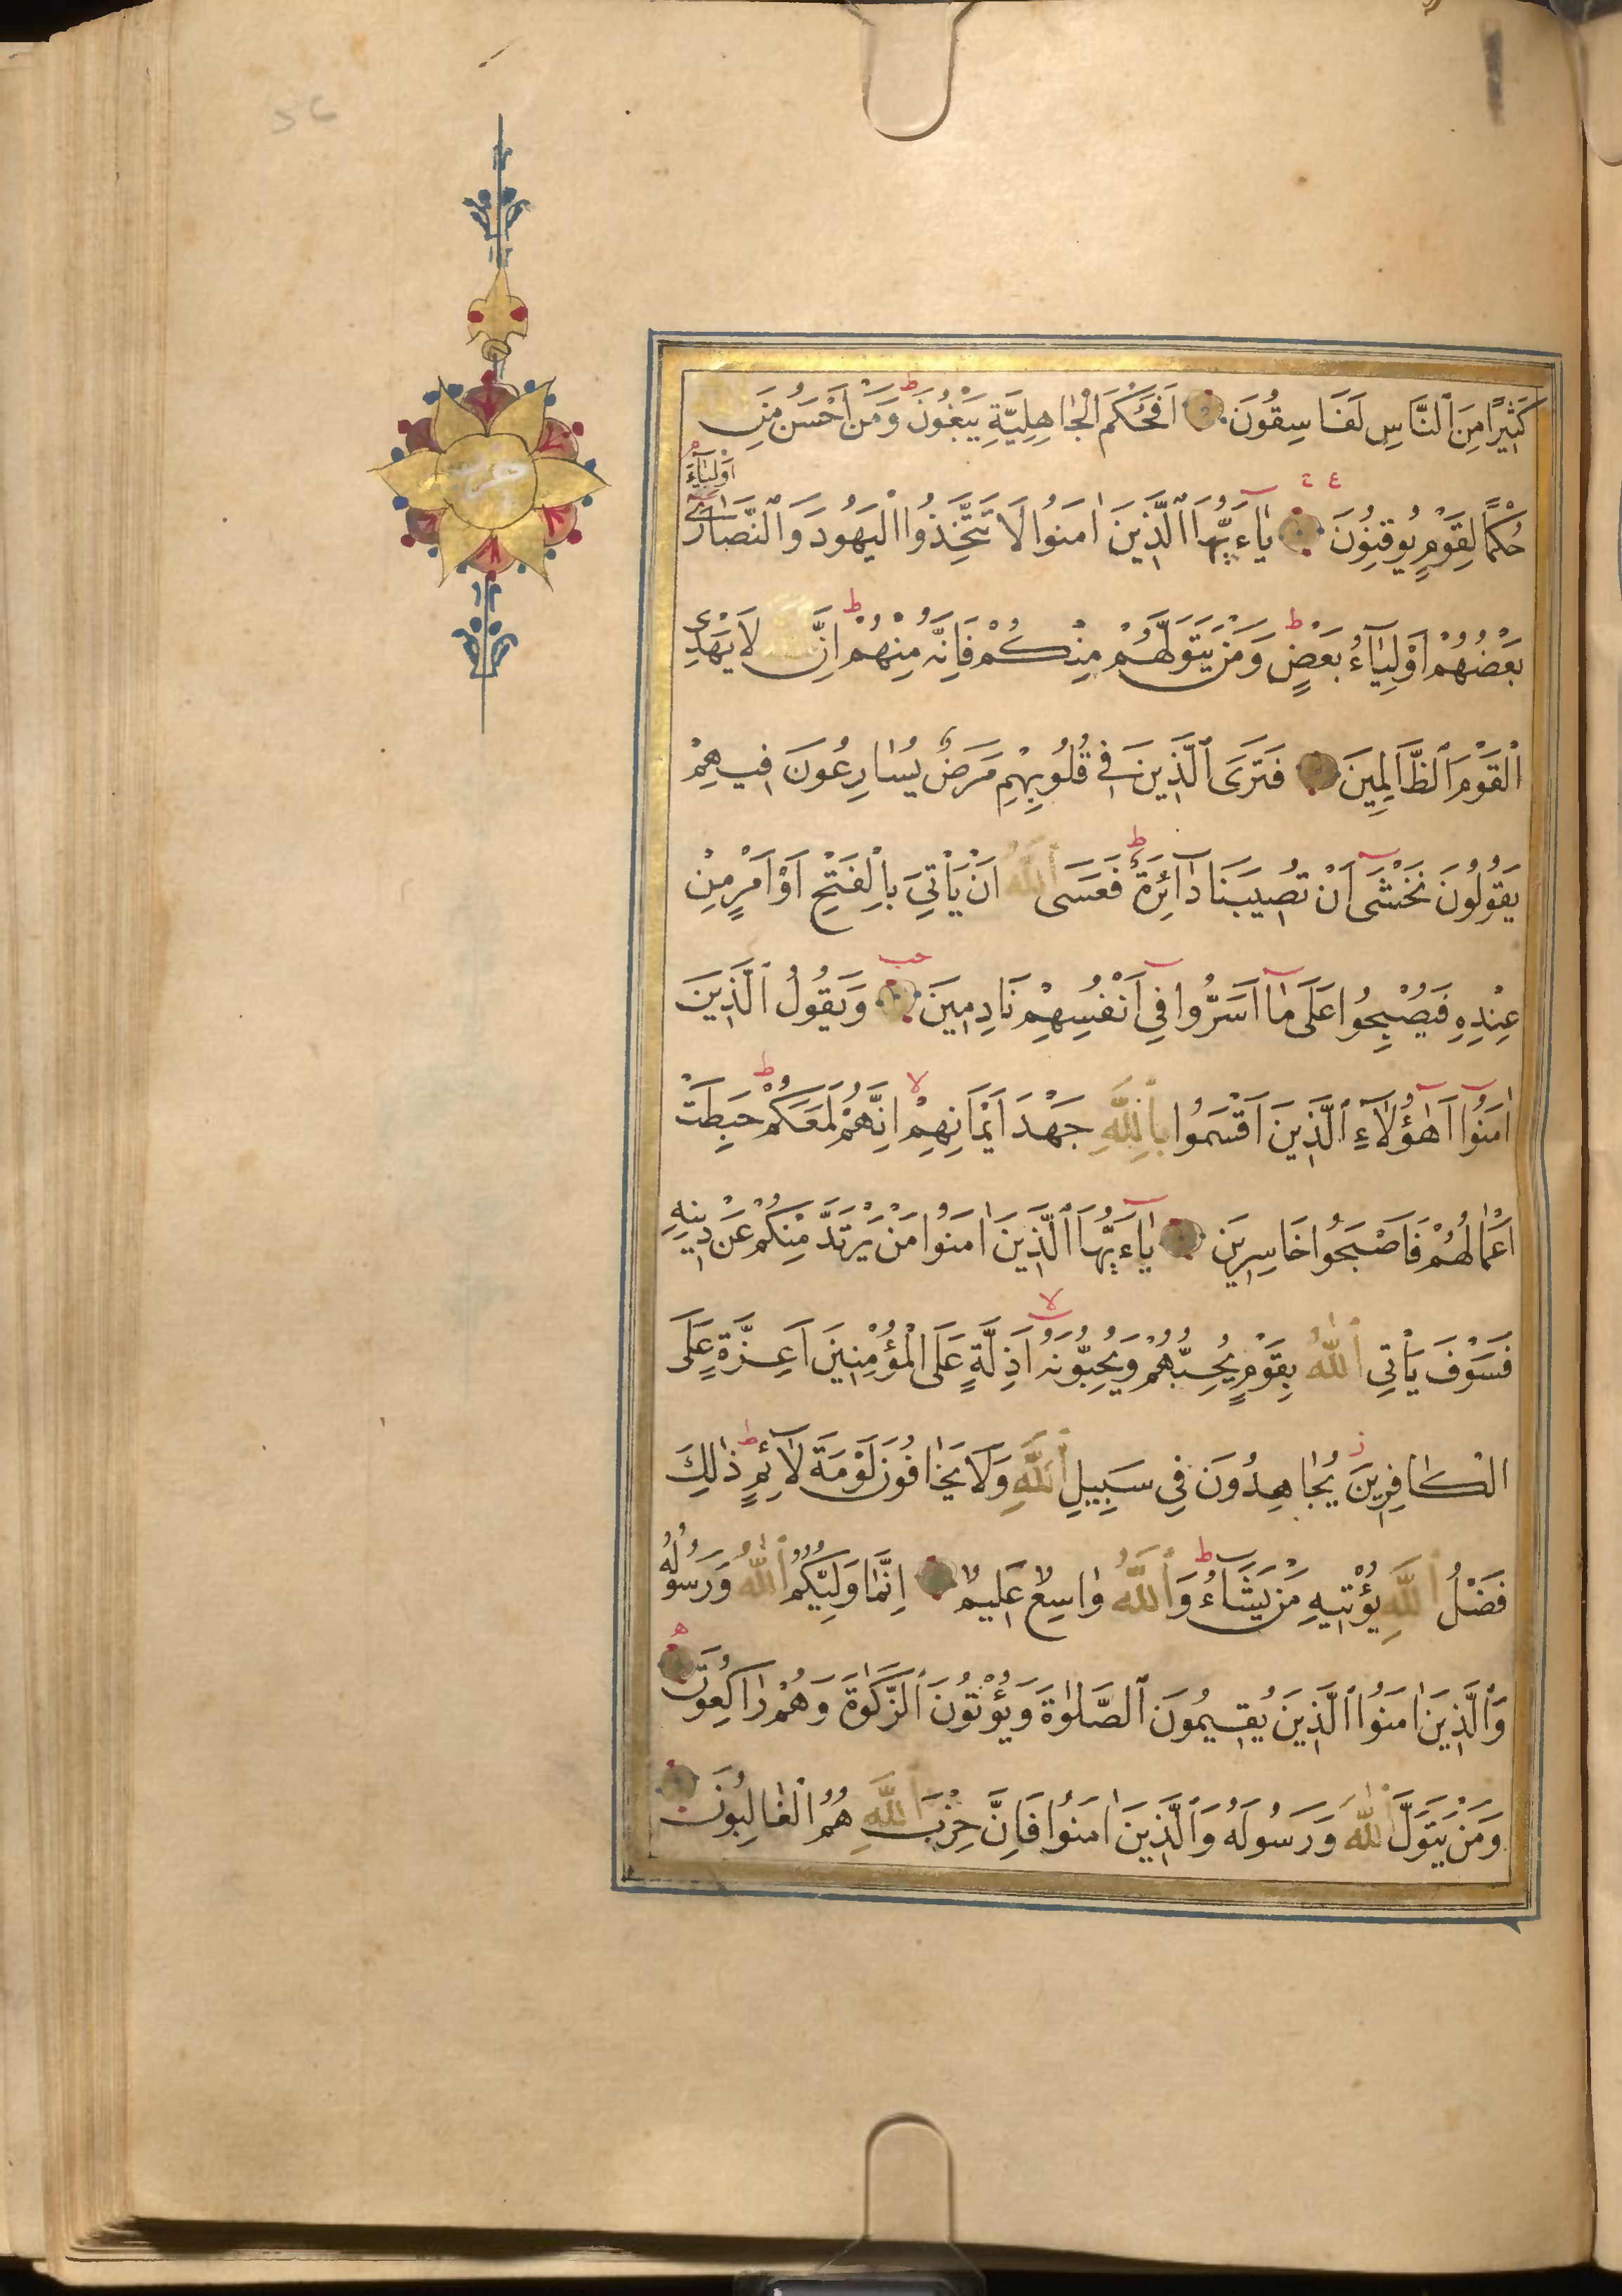 كَثِيرًا مِنَ ٱلنَّاسِ لَفَاسِقُونَ اَفَحُكْمَ الْجَاهِلِيَّةِ يَبْغُونَ ط وَمَنْ اَحْسَنُ مِنَ ٱللَّهِ
حُكْمًا لِقَوْمٍ يُوقِنُونَ ع يَٓاءَيُّهَا ٱلَّذِينَ اٰمَنُوا لَا تَتَّخِذُوا الْيَهُودَ وَٱلنَّصَارٰٓى اَوْلِيَآءَ
بَعْضُهُمْ اَوْلِيَآءُ بَعْضٍ ط وَمَنْ يَتَوَلَّهُمْ مِنْكُمْ فَاِنَّهُ مِنْهُمْ ط اِنَّ ٱللَّهَ لَا يَهْدِى
الْقَوْمَ ٱلظَّالِمِينَ فَتَرَى ٱلَّذِينَ فِى قُلُوبِهِمْ مَرَضٌ يُسَارِعُونَ فِيهِمْ
يَقُولُونَ نَخْشٰٓى اَنْ تُصِيبَنَا دَآئِرَةٌ ط فَعَسَى ٱللّٰهُ اَنْ يَاْتِىَ بِالْفَتْحِ اَوْ اَمْرٍ مِنْ
عِنْدِهِ فَيُصْبِحُوا عَلٰى مَٓا اَسَرُّوا فِٓى اَنْفُسِهِمْ نَادِمِينَ حب وَيَقُولُ ٱلَّذِينَ
اٰمَنُٓوا اَهٰٓؤُلَآءِ ٱلَّذِينَ اَقْسَمُوا بِٱللَّهِ جَهْدَ اَيْمَانِهِمْ لا اِنَّهُمْ لَمَعَكُمْ ط حَبِطَتْ
اَعْمَالُهُمْ فَاَصْبَحُوا خَاسِرِينَ يَٓاءَيُّهَا ٱلَّذِينَ اٰمَنُوا مَنْ يَرْتَدَّ مِنْكُمْ عَنْ دِينِهِ
فَسَوْفَ يَاْتِى ٱللّٰهُ بِقَوْمٍ يُحِبُّهُمْ وَيُحِبُّونَهُ لا اَذِلَّةٍ عَلَى الْمُؤْمِنِينَ اَعِزَّةٍ عَلَى
الْكَافِرِينَ ز يُجَاهِدُونَ فِى سَبِيلِ ٱللَّهِ وَلَا يَخَافُونَ لَوْمَةَ لَآئِمٍ ط ذٰلِكَ
فَضْلُ ٱللَّهِ يُؤْتِيهِ مَنْ يَشَآءُ ط وَٱللَّهُ وَاسِعٌ عَلِيمٌ اِنَّمَا وَلِيُّكُمُ ٱللّٰهُ وَرَسُولُهُ
وَٱلَّذِينَ اٰمَنُوا ٱلَّذِينَ يُقِيمُونَ ٱلصَّلٰوةَ وَيُؤْتُونَ ٱلزَّكٰوةَ وَهُمْ رَاكِعُونَ
وَمَنْ يَتَوَلَّ ٱللّٰهَ وَرَسُولَهُ وَٱلَّذِينَ اٰمَنُوا فَاِنَّ حِزْبَ ٱللَّهِ هُمُ الْغَالِبُونَ